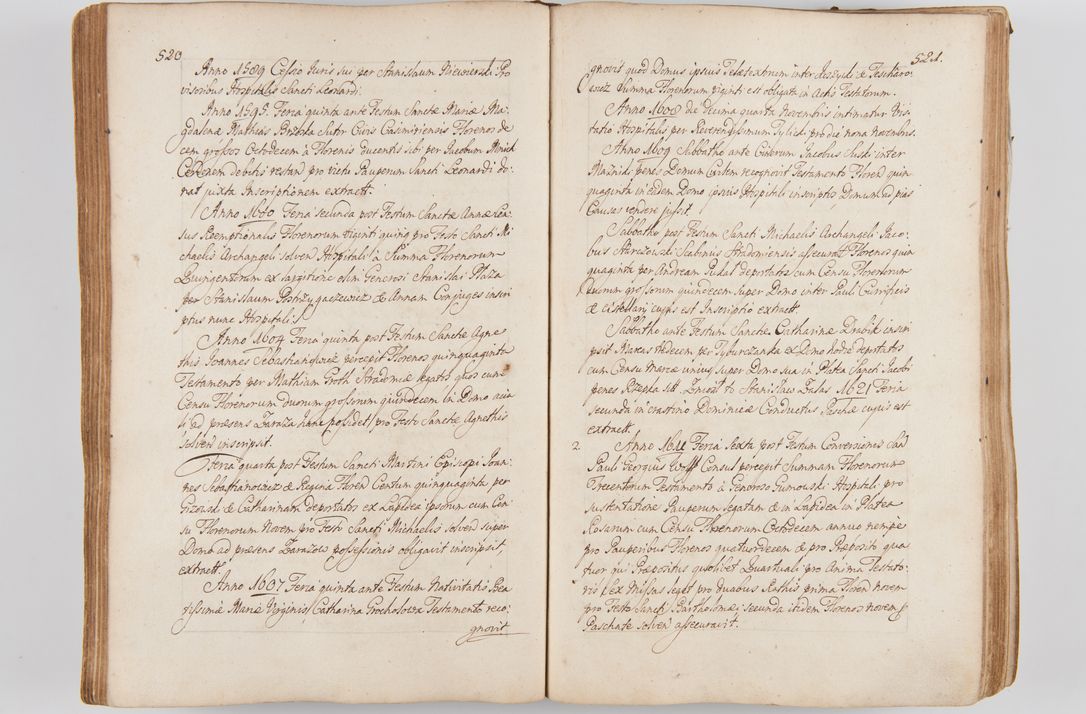 520
Anno 1589 Cessio Iuris sui per Stanislaum Pro
visoribus Hospitalis Sancti Leonardi.
Anno 1595. Feria quinta ante Festum Sanctæ Mariæ Ma
gdalenæ Mathias Sutor Civis Casimiriensis Florenos de
cem grossos Octodecem à Florenis ducentis sibi per Jacobum
debitis restan pro victu Pauperum Sancti Leonardi do
nat juxta Inscriptionem extract.
Anno 1600 Feria secunda post Festum Sanctæ Annæ Cen
sus Reemptionalis Florenorum viginti quinq pro Festo Sancti Mi
chaelis Archangeli solven Hospitali à Summa Florenorum
Quingentorum ex largitione olim Generosi Stanislai Plaza
per Stanislaum & Annam Conjuges inscri
ptus nunc Hospitali.
Anno 1604 Feria quinta post Festum Sanctæ Agne
this Joannes Sebastianowicz percepit Florenos quinquaginta
Testamento per Mathiam Groth Stradomiæ legatos quos cum
Censu Florenorum duorum grossorum quindecem in Domo acia
li ad præsens Zaraza hanc possidet pro Festo Sanctæ Agnethis
solven inscripsit.
Feria quarta post Festum Sancti Martini Episcopi Joan:
nes Sebastianowicz & Regina Floren Centum quinquaginta per
& Catharinam deportatos ex Lapidea ipsorum cum Cen
su Florenorum Novem pro Festo Sancti Michaelis solven super
Domo ad præsens possessionis obligavit inscripsit,
extract.
Anno 1607 Feria quinta ante Festum Nativitatis Bea
tissimæ Mariæ Virginis Catharina Grocholowa Testamento reco:
gnovit
521.
gnovit quod Domus ipsius inter
Summa Florenorum viginti est obligata in Actis Testatorum.
Anno 1608 die Decima quarta Novembris intimatur Visi
tatio Hospitalis per Reverendissimum Tylicki pro die nona Novembris.
Anno 1609 Sabbatho ante Cinerum Jacobus Suski inter
penes Domum Civilem recognovit Testamento Floren quin
quaginta in eadem Domo ipsius Hospitali inscriptos, Domum ad pias
Causas vendere jussit.
Sabbatho post Festum Sancti Michaelis Archangeli Jaco
bus Scabinus Stradomiensis assecurat Florenos quin
quaginta per Andream deportatos cum Censu Florenorum
duorum grossorum quindecem super Domo inter Pauli Currificis
& cujus est Inscriptio extract.
Sabbatho ante Festum Sanctæ Catharinæ Drabik inscri
psit Marcas Undecem per Tyburczanka ex Domo hodie deportatas
cum Censu Marcæ unius super Domo sua in Platea Sancti Jacobi
penes sitt. Zniosł to Stanisław Zalas 1621 Feria
secunda in crastino Dominicæ Conductus Paschæ cujus est
extract.
2. Anno 1611 Feria Sexta post Festum Conversionis San
Pauli Georgius Consul percepit Summam Florenorum
Trecentorum Testamento à Generoso Gumowski Hospitali pro
sustentatione Pauperum legatam & in Lapidea in Platea
Rosarum cum Censu Florenorum Octodecem annuo nempe
pro Pauperibus Florenos quatuordecem & pro Præposito qua
tuor qui Præpositus quolibet Quartuali pro Anima Testato
ris leget pro duabus Rathis prima Floren novem
pro Festo Sancti Bartholomæi secunda itidem Florenos novem p
Paschate solven assecuravit.